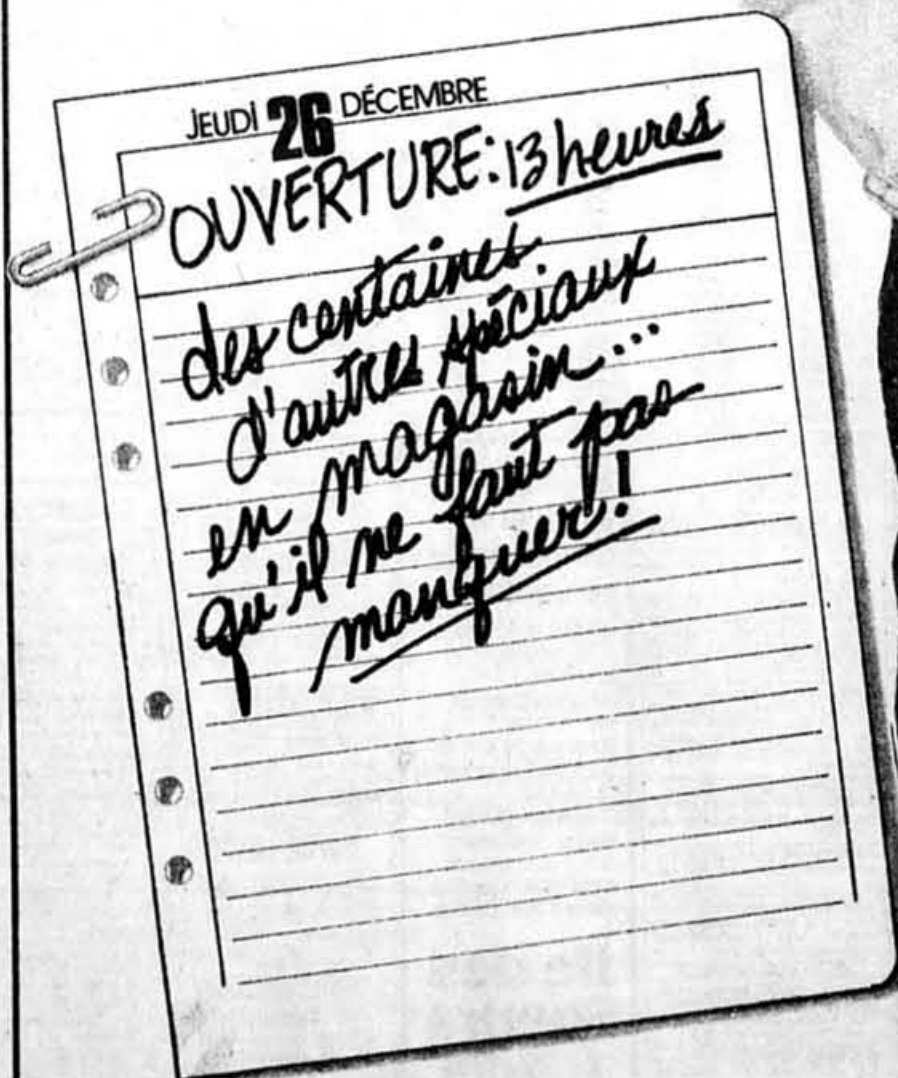 JEUDI 26 DÉCEMBRE
OUVERTURE: 13 heures
des centaines
d'autres spéciaux
en magasin...
qu'il ne faut pas
manquer!